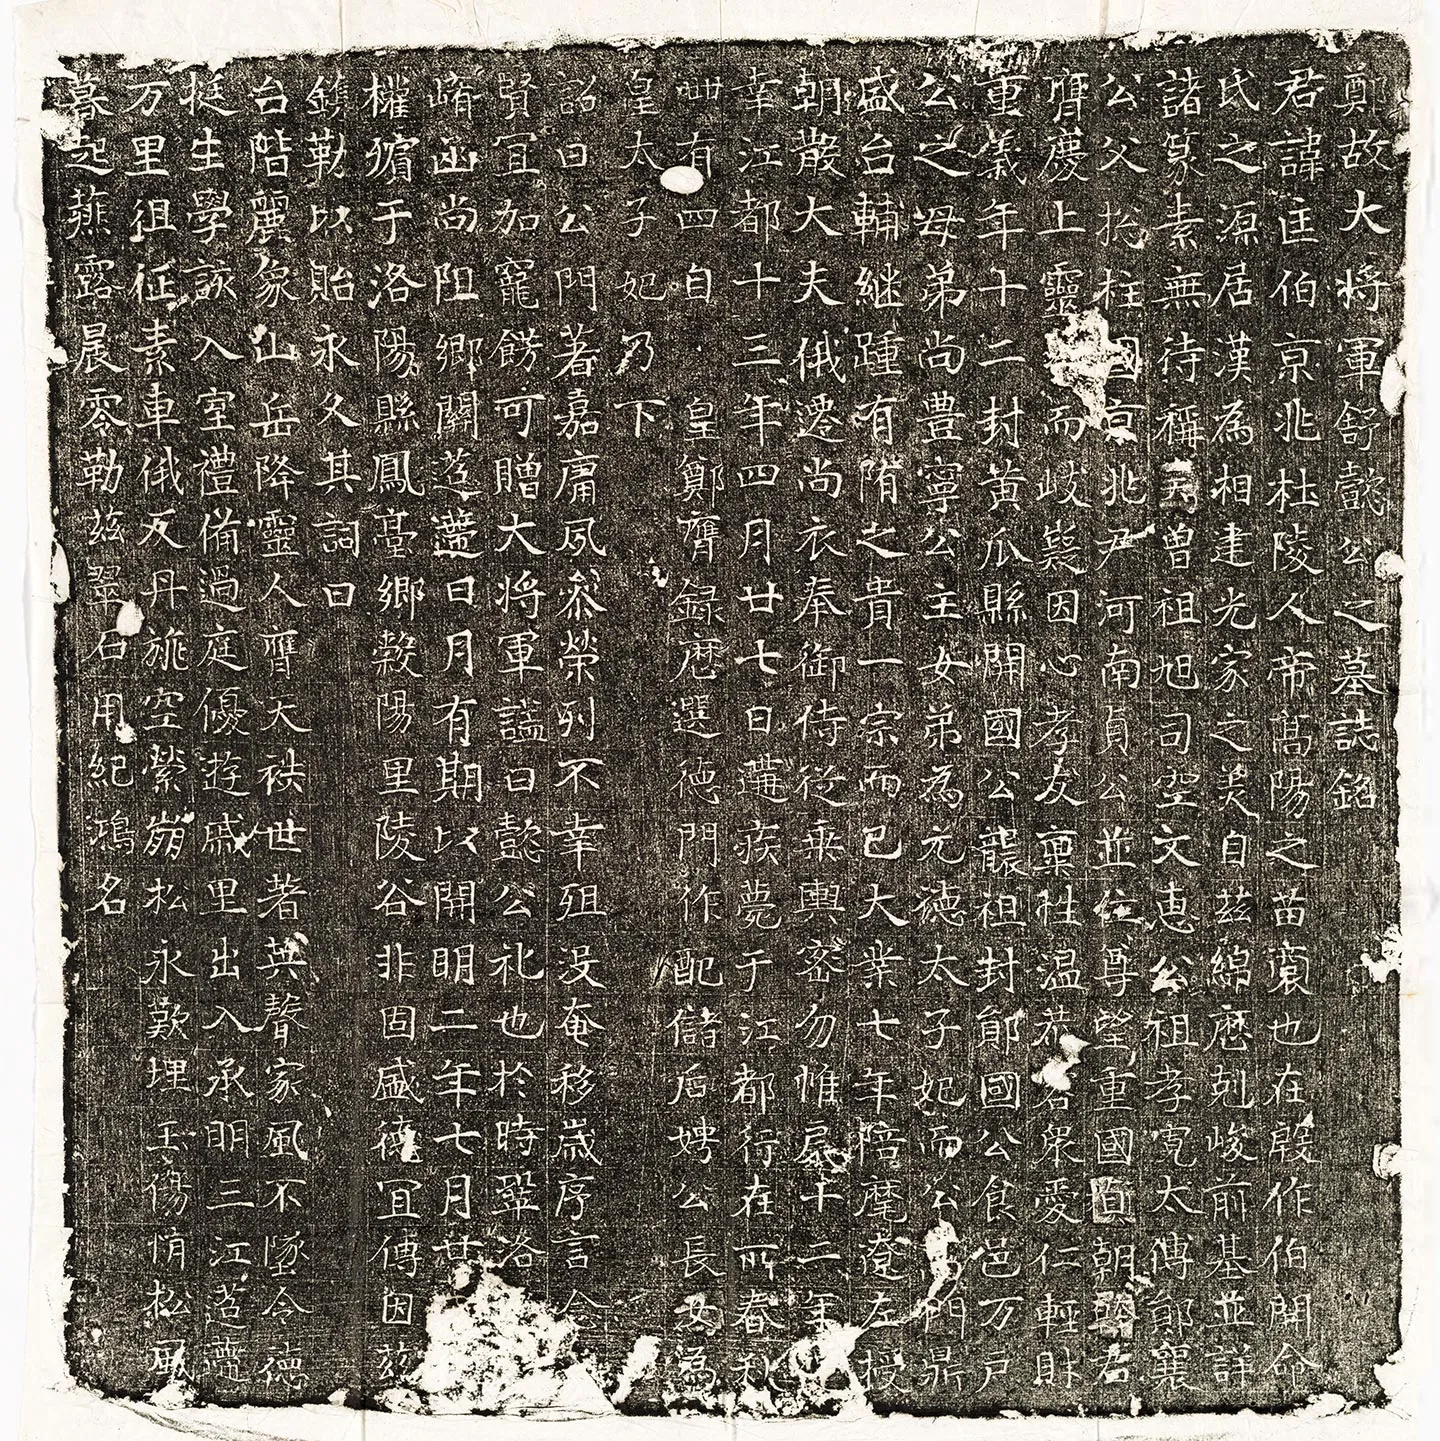 鄭故大將軍舒懿公之墓誌銘
君諱匡伯京兆杜陵人帝高陽之苗裔也在殷作伯開命
氏之源居漢為相建光家之美自茲綿曆剋峻前基並詳
諸篆素無待稱言曾祖旭司空文惠公祖孝寬太傅鄖襄
公父揔柱國京兆尹河南貞公並位尊望重國朝君
膺慶上靈而岐嶷因心孝友稟性温恭容眾愛仁輕財
重義年十二封黃瓜縣開國公襲祖封鄖國公食邑万戶
公之母弟尚豊寧公主女弟為元德太子妃而公門鼎
盛台輔継踵有隋之貴一宗而已大業七年陪麾遼左授
朝散大夫俄遷尚衣奉御侍從乘輿密勿惟扆十二年
幸江都十三年四月廿七日遘疾薨于江都行在所春秋
卌有四自皇鄭膺録曆選德門作配儲后娉公長女為
皇太子妃乃下
詔曰公門著嘉庸夙參榮列不幸殂沒奄移歲序言念
賢宜加寵餝可贈大將軍諡曰懿公礼也於時鞏洛
崤函尚阻鄉關迢遰日月有期以開明二年七月廿
權殯于洛陽縣鳳臺鄉穀陽里陵谷非固盛德宜傳因茲
鐫勒以貽永久其詞曰
台階麗象山岳降靈人膺天袟世著英聲家風不墜令德
挺生學該入室禮備過庭優遊戚里出入承明三江迢遰
万里徂征素車俄反丹旐空縈崩松永歎埋玉傷情松風
暮起薤露晨零勒茲翠石用紀鴻名